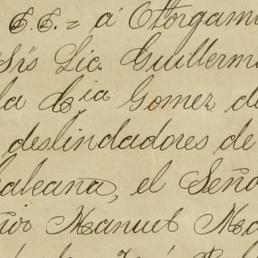 E.E. = á Otorgam
Sís Lic. Guillerm
la Cia Gomez de
deslindadores de
aleana, el Seño
Manuel Ma